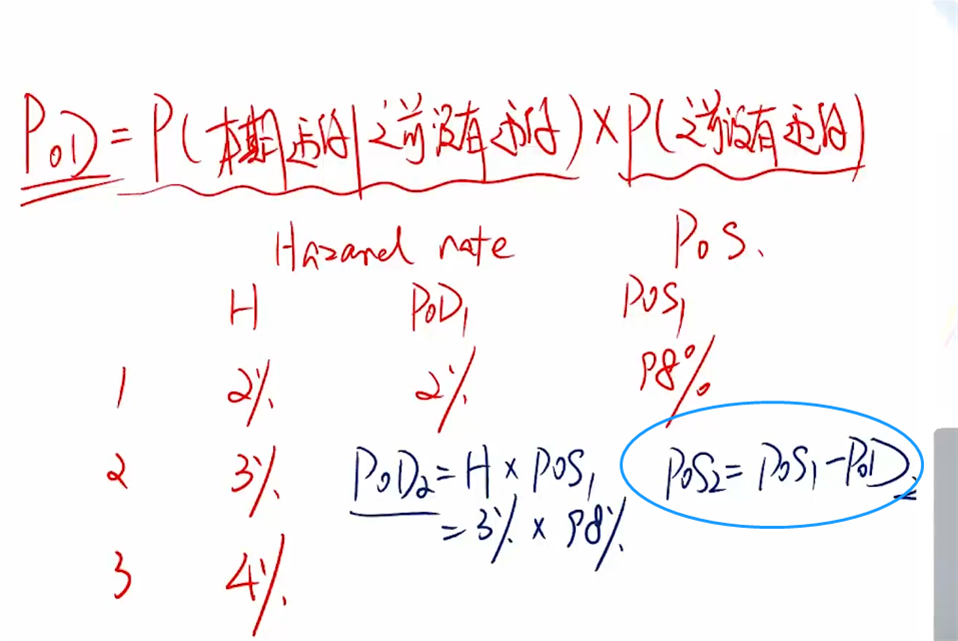 POD = P(本期违约|之前没有违约) × P(之前没有违约)
Hazard rate POS.
H POD₁ POS₁
1 2% 2% 98%
2 3% POD₂ = H × POS₁ POS₂ = POS₁ - POD₂
= 3% × 98%
3 4%